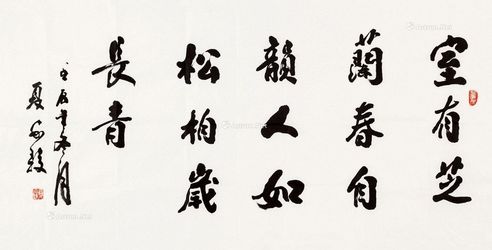 室有芝
蘭春自
韻人如
松柏歲
長青
壬辰年冬月
夏